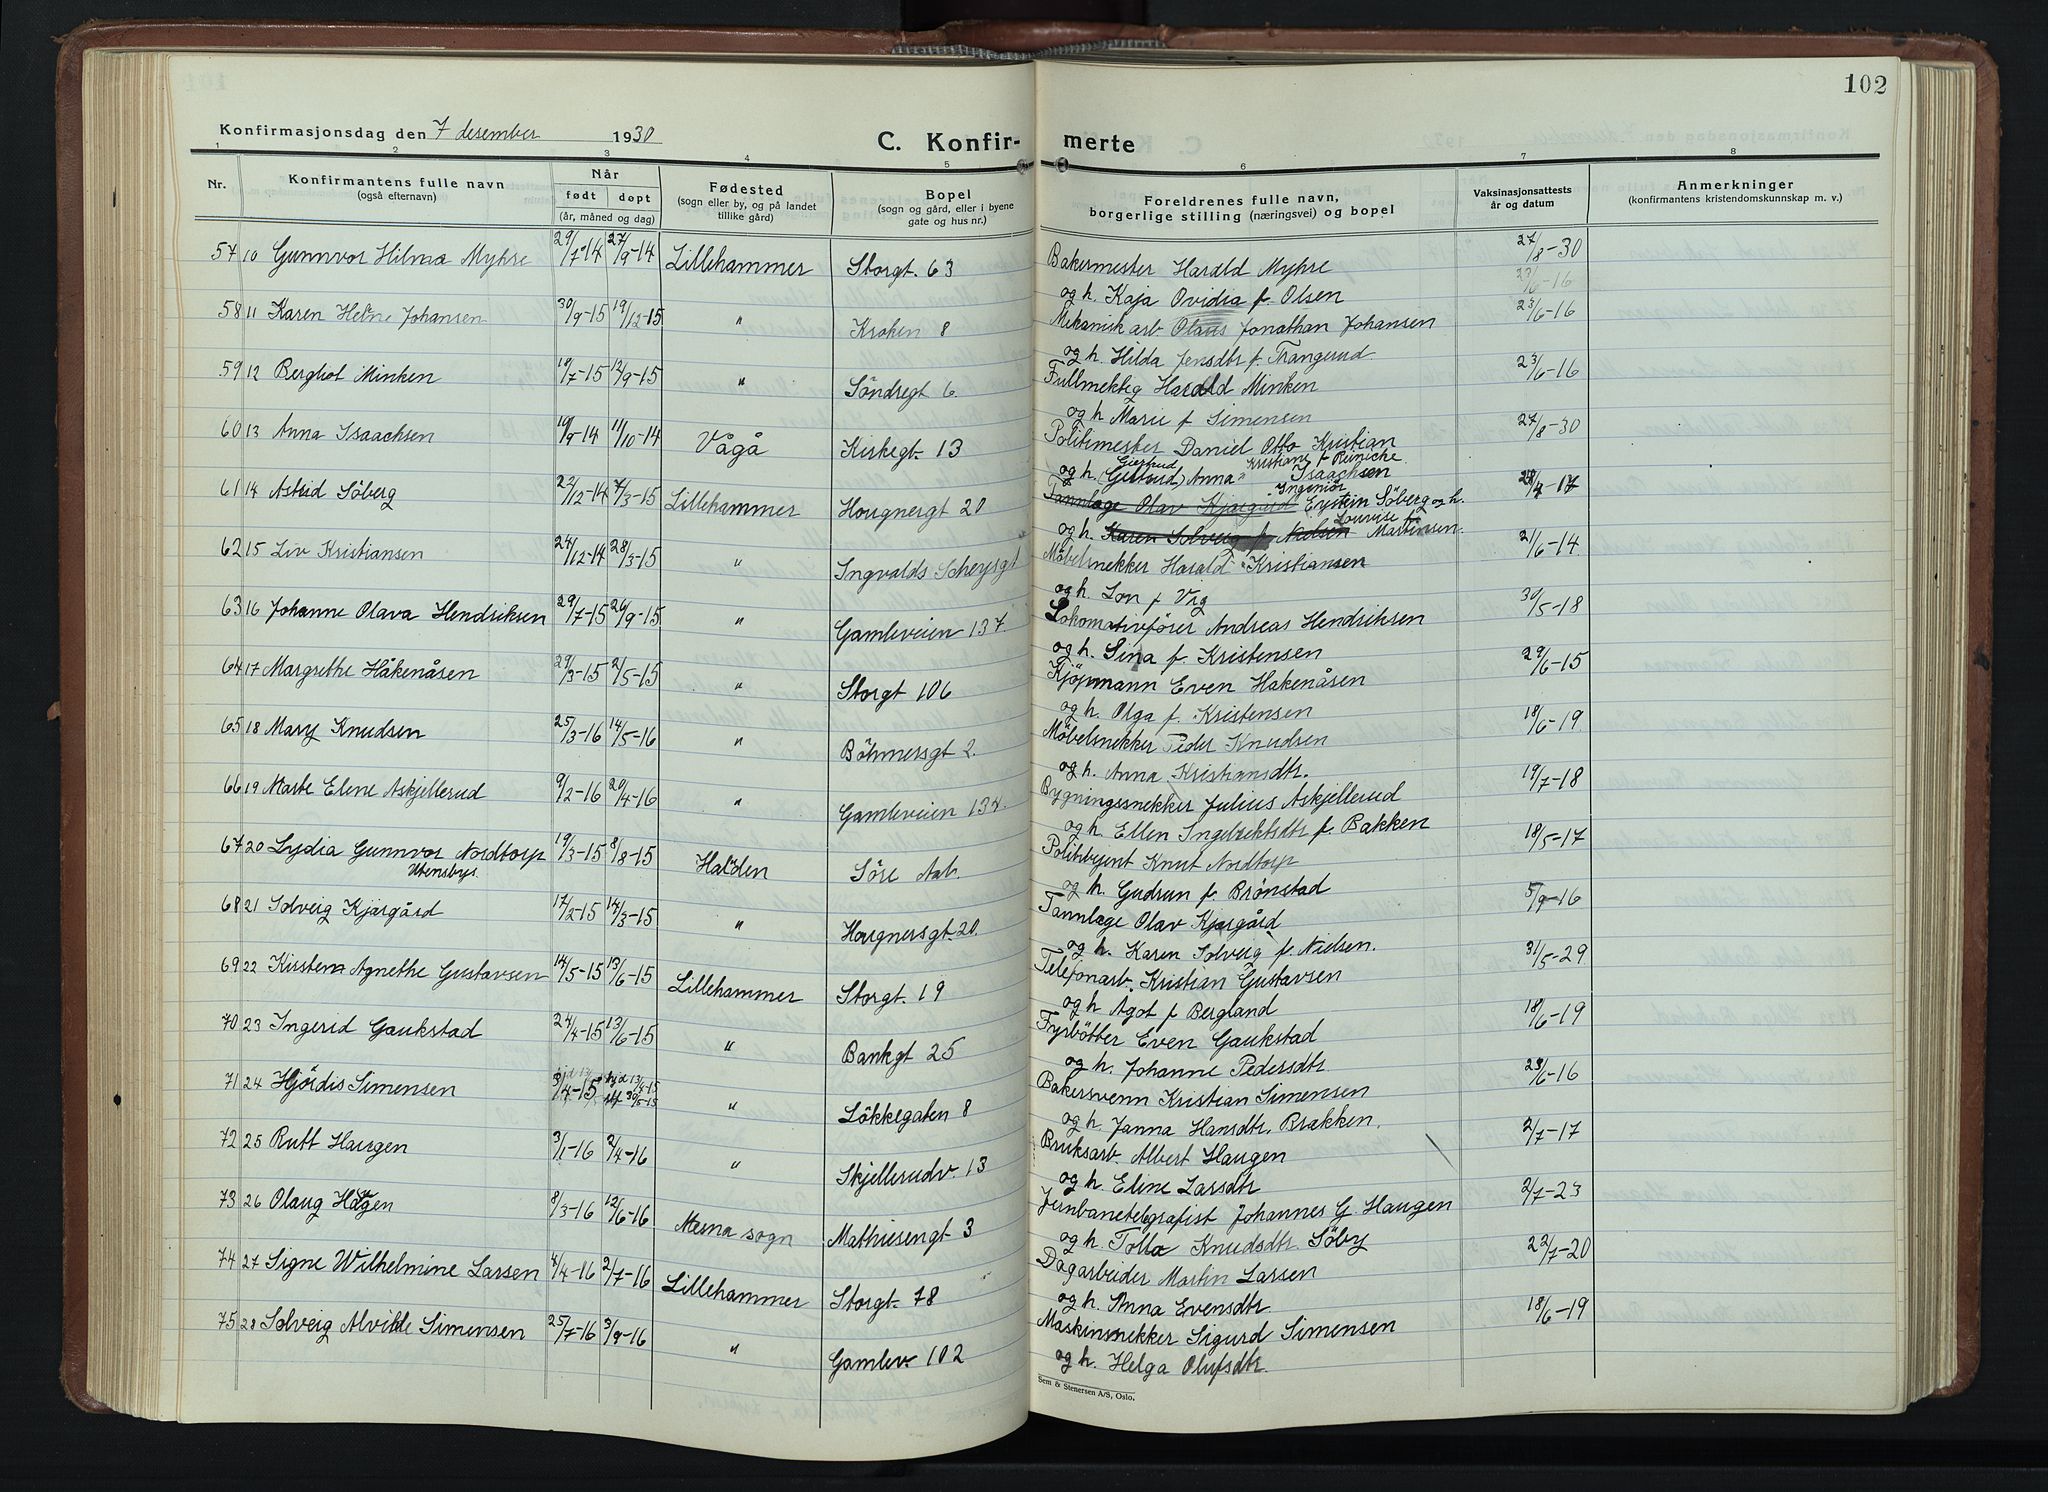 102
Konfirmasjonsdag den 7 desember 1930
C. Konfir- merte
1 2 3 4 5 6 7 8
Nr. Konfirmantens fulle navn (også efternavn) Når født døpt (år, måned og dag) Fødested (sogn eller by, og på landet tillike gård) Bopel (sogn og gård, eller i byene gate og hus nr.) Foreldrenes fulle navn, borgerlige stilling (næringsvei) og bopel Vaksinasjonsattests år og datum Anmerkninger (konfirmantens kristendomskunnskap m. v.)
57 10 Gunnvor Hilma Myhre 29/7-14 27/9-14 Lillehammer Storgt. 63 Bakermester Harald Myhre 27/8-30
23/6-16
og h. Kaja Ovidia f. Olsen
58 11 Karen Helene Johansen 30/9-15 19/12-15 " Kroken 8 Mekanisk arb Olaus Jonathan Johansen 23/6-16
og h. Hilda Jensdtr f. Trangerud
59 12 Berghot Minken 19/7-15 12/9-15 " Söndregt 6. Fullmektig Harald Minken 23/6-16
og h. Marie f Simensen
60 13 Anna Isaachsen 19/9-14 11/10-14 Vågå Kirkegt. 13 Politimester Daniel Otto Kristian 27/8-30
Giertrud Kristiane f Reiniche
og h. (Gertrud) Anna " Isaachsen
61 14 Astrid Söberg 22/12-14 7/3-15 Lillehammer Hougnergt 20 Tannlæge Olav Kjærgård Ingeniör Eystein Söberg og h. 28/7-17
og h. Karen Solveig f Nielsen Lourise f. Martinsen.
62 15 Liv Kristiansen 24/12-14 28/3-15 " Ingvalds Scheysgt Möbelsnekker Harald Kristiansen 2/6-14
og h. Lon f Vig
63 16 Johanne Olava Hendriksen 29/7-15 26/9-15 " Gamleveien 137. Lokomotivförer Andreas Hendriksen 30/5-18
og h. Sina f. Kristensen
64 17 Margrethe Håkenåsen 29/3-15 2/5-15 " Storgt 106 Kjöpmann Even Hakenåsen 29/6-15
og h. Olga f. Kristensen
65 18 Mary Knudsen 25/3-16 14/5-16 " Böhmersgt 2. Möbelsnekker Peder Knudsen 18/6-19
og h. Anna Kristiansdtr.
66 19 Marte Elene Askjellerud 9/2-16 20/4-16 " Gamleveien 134. Bygningssnekker Julius Askjellerud 19/7-18
og h. Ellen Ingebrektsdtr f. Bakken
67 20 Lydia Gunnvor Nordtorp 19/3-15 8/8-15 Halden Söre Aal. Politibetjent Knut Nordtorp 18/5-17
Utenbys.
og h. Gudrun f. Brønstad
68 21 Solveig Kjærgård 17/2-15 14/3-15 " Hougnersgt. 20. Tannlæge Olav Kjærgård 5/9-16
og h. Karen Solveig f. Nielsen.
69 22 Kirsten Agnethe Gustavsen 14/5-15 13/6-15 Lillehammer Storgt. 19 Telefonarb. Kristian Gustavsen 31/5-29
og h Agot f Bergland
70 23 Ingerid Gaukstad 24/4-15 13/6-15 " Bankgt 25 Fyrbötter Even Gaukstad 18/6-19
og h. Johanne Pedersdtr
71 24 Hjördis Simensen 3/4-15 hjd 13/4-15 " Lökkegaten 8 Bakersvenn Kristian Simensen 23/6-16
30/5-15
og h. Janna Hansdtr. Brakken.
72 25 Rutt Haugen 3/1-16 2/4-16 " Skjellerudv. 13 Bruksarb. Albert Haugen 2/7-17
og h. Elene Larsdtr
73 26 Olaug Hagen 8/3-16 12/6-16 Mesna sogn Mathiesengt 3 Jernbanetelegrafist Johannes G Haugen 2/7-23
og h. Tolla Knudsdtr Söby
74 27 Signe Wilhelmine Larsen 4/4-16 2/7-16 Lillehammer Storgt. 78 Dagarbeider Martin Larsen 22/7-20
og h. Anna Evensdtr.
75 28 Solveig Alvilde Simensen 25/7-16 3/9-16 " Gamlev. 102 Maskinsnekker Sigurd Simensen 18/6-19
og h. Helga Olufsdtr.
Sem & Stenersen A/S, Oslo.